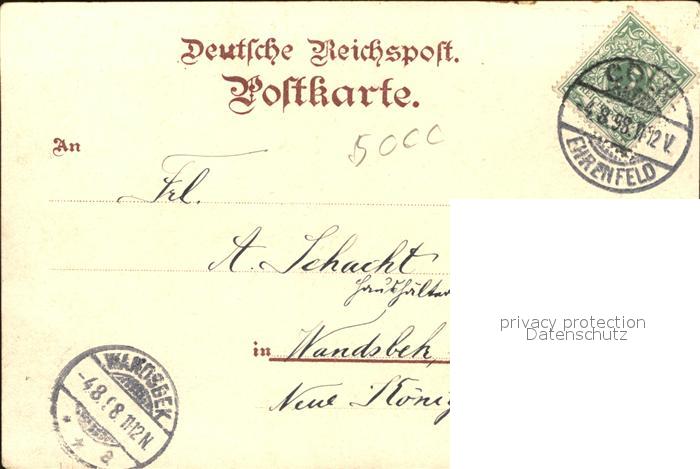 Deutsche Reichspost.
Postkarte.
CÖLN
4.8.98.11-12V.
EHRENFELD
An
5000
Frl.
A. Schacht
Haushälter
privacy protection
Datenschutz
in Wandsbek,
Neue König
WANDSBEK
-4.8.98.11-12N.
* * a